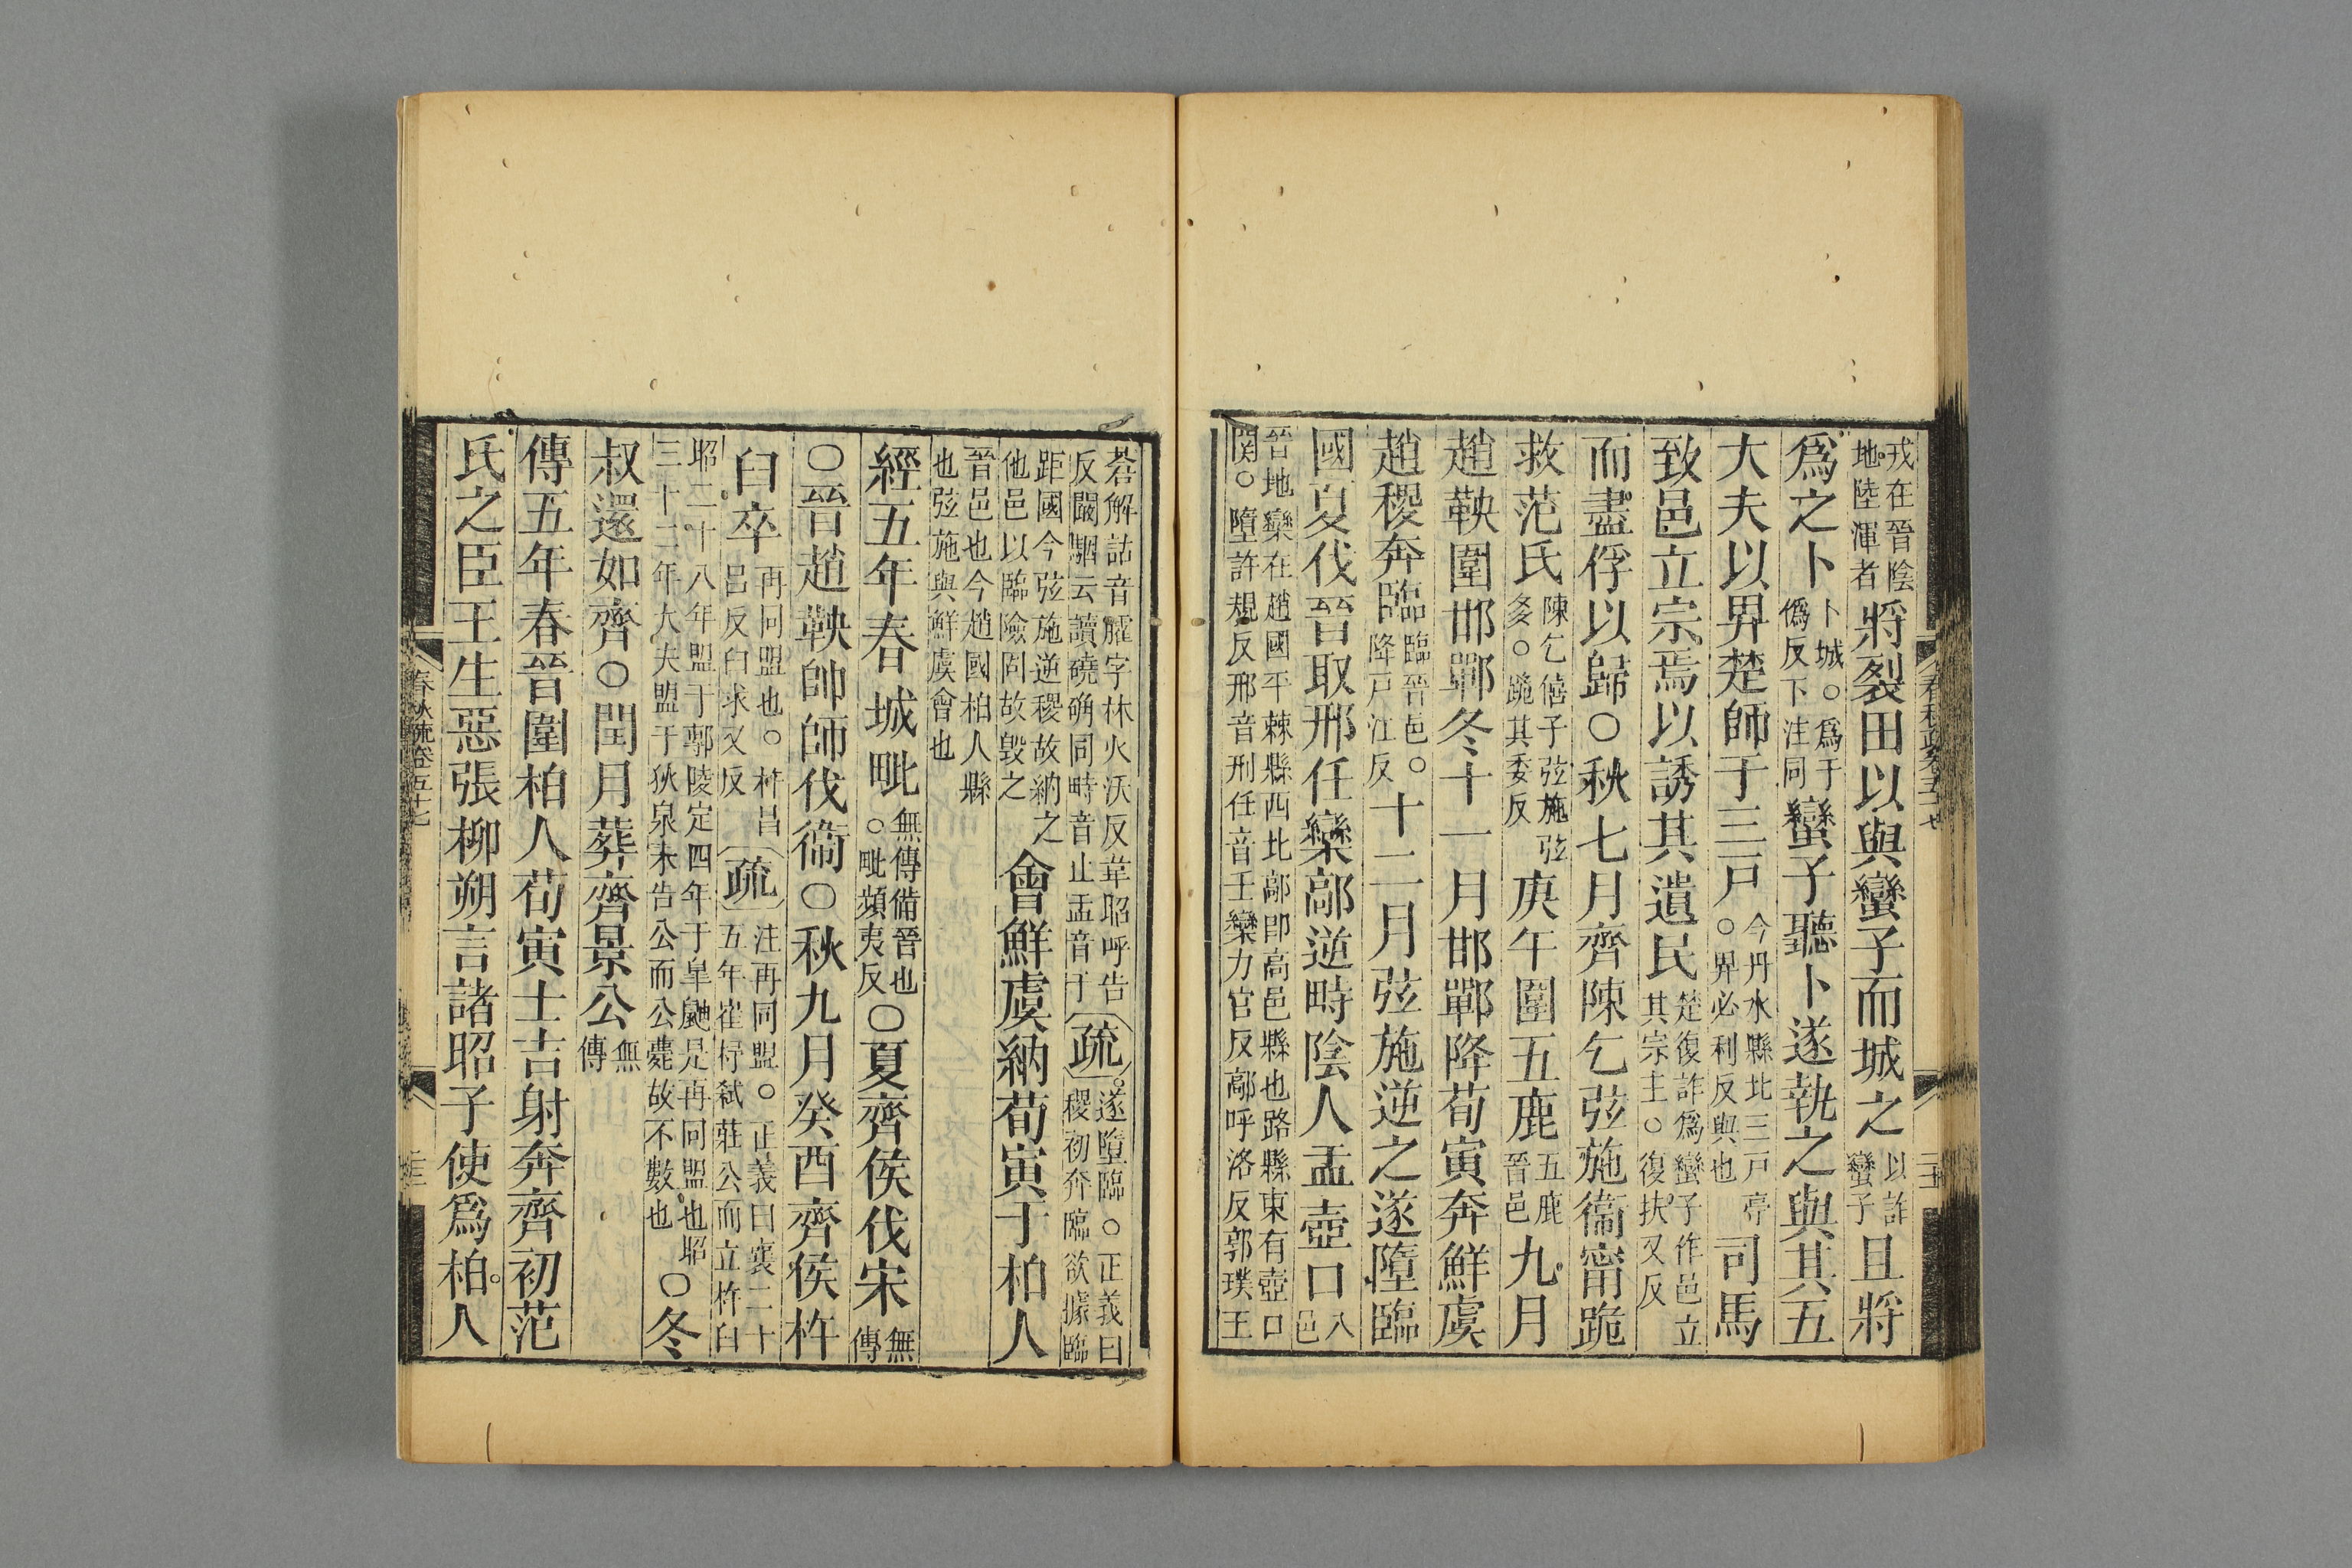 戎在晉陰地陸渾者將裂田以與蠻子而城之以詐蠻子且將
爲之卜卜城○爲于僞反下注同蠻子聽卜遂執之與其五
大夫以畀楚師于三戸今丹水縣北三戸亭○畀必利反與也司馬
致邑立宗焉以誘其遺民楚復詐爲蠻子作邑立其宗主○復扶又反
而盡俘以歸○秋七月齊陳乞弦施衞甯跪
救范氏陳乞僖子弦施弦多○跪其委反庚午圍五鹿五鹿晉邑九月
趙鞅圍邯鄲冬十一月邯鄲降荀寅奔鮮虞
趙稷奔臨臨晉邑○降戸江反十二月弦施逆之遂墮臨
國夏伐晉取邢任欒鄗逆畤陰人盂壺口八邑
晉地欒在趙國平棘縣西北鄗卽高邑縣也路縣東有壺口
関○墮許規反邢音刑任音壬欒力官反鄗呼洛反郭璞王
蒼解詁音臛字林火沃反韋昭呼告
反闞駰云讀磽确同畤音止盂音于疏遂墮臨○正義曰稷初奔臨欲據臨
距國今弦施逆稷故納之
他邑以臨險固故毀之會鮮虞納荀寅于柏人
晉邑也今趙國柏人縣
也弦施與鮮虞會也
經五年春城毗無傳備晉也○毗頻夷反○夏齊侯伐宋無傳
○晉趙鞅帥師伐衞○秋九月癸酉齊侯杵
臼卒再同盟也○杵昌呂反臼求又反疏注再同盟○正義曰襄二十五年崔杼弑莊公而立杵臼
昭二十八年盟于鄟陵定四年于皐鼬是再同盟也昭
三十二年大夫盟于狄泉未告公而公薨故不數也○冬
叔還如齊○閏月葬齊景公無傳
傳五年春晉圍柏人荀寅士吉射奔齊初范
氏之臣王生惡張柳朔言諸昭子使爲柏人
春秋疏卷五十七